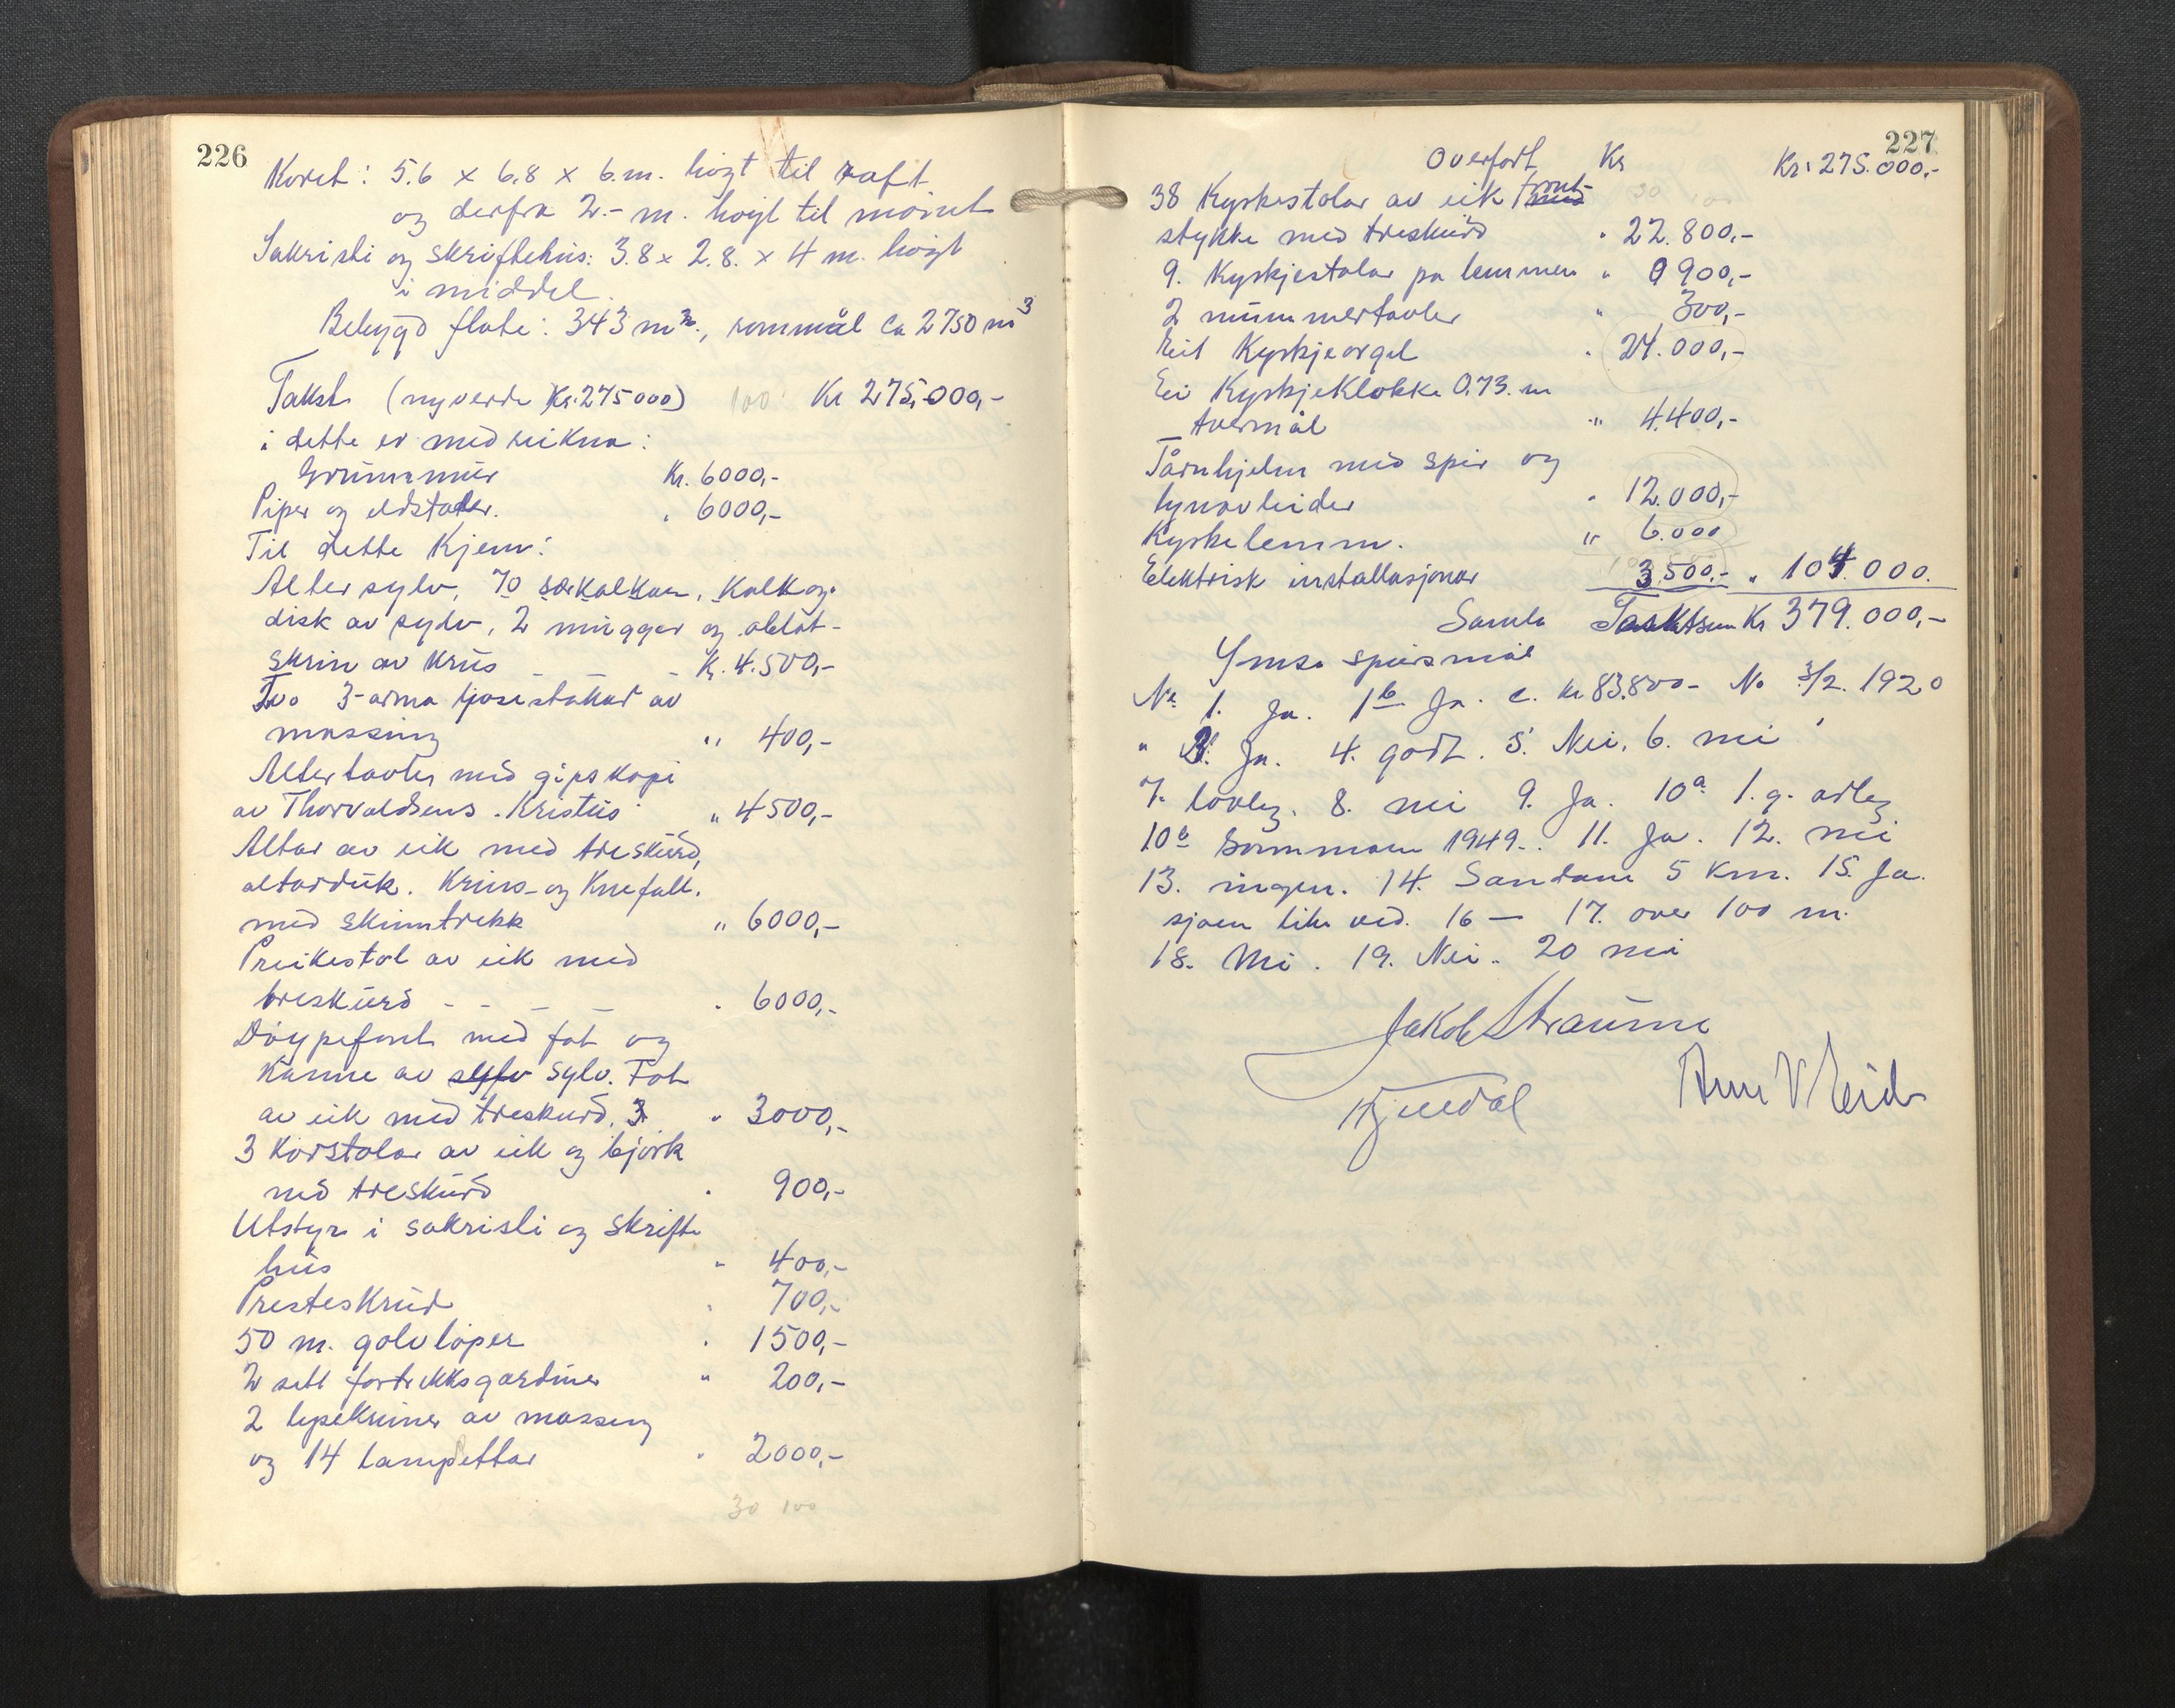 226
Koret: 5.6 x 6.8 x 6.m. høgt til raft
og derfra 2.- m. høgt til mønet
Sakristi og skriftehus: 3.8 x 2.8. x 4 m. høgt
i middel.
Bebygd flate: 343 m2., rommål ca 2750 m3
Takst (nyverde Kr. 275000) 100 Kr 275.000,-
i dette er medreikna:
Grunnmur Kr. 6000,-
Piper og eldstader. " 6000,-
Til dette kjem:
Altersylv, 70 særkalkar, Kalk og
disk av sylv, 2 mugger og oblat-
skrin av krus - - K. 4.500,-
Two 3-arma ljosestakar av
messing " 400,-
Altertavle med gipskopi
av Thorvaldsens Kristus " 4500,-
Altar av eik med treskurd,
altarduk. Krins- og Knefall.
med skinntrekk " 6000,-
Preikestol av eik med
treskurd - - - - " 6000,-
Døypefont med fat og
Kanne av sylv sylv. Fat
av eik med treskurd. 3 " 3000,-
3 Korstolar av eik og bjørk
med treskurd " 900,-
Utstyr i sakristi og skrifte
hus " 400,-
Presteskrud " 700,-
50 m. golvløper " 1500,-
2 sett fortrekksgardiner " 200,-
2 lysekruner av messing
og 14 lampettar " 2000,-
30 100
227
Overført Kr Kr. 275.000,-
38 Kyrkestolar av eik front-
stykke med treskurd " 22.800,-
9. Kyrkjestolar på lemmen " 900,-
2 nummertavler " 300,-
Eit Kyrkjeorgel " 24.000,-
Ei Kyrkjeklokke 0.73. m
tvermål " 4.400,-
Tårnhjelm med spir og
lynavleider " 12.000,-
Kyrkelemm. " 6.000
Elektrisk installasjonar 3.500,- " 104.000.
Samla Takstsum Kr 379.000,-
Ymse spursmål
Nr 1. Ja. 1b Ja. c. kr 83.800- No 3/2. 1920
" 3. Ja. 4. godt. 5. Nei. 6. nei
7. lovleg. 8. nei 9. Ja. 10a 1. g. årleg
10b Sommaren 1949. 11. Ja. 12. nei
13. ingen. 14. Sandane 5 km. 15. Ja.
sjøen like ved. 16 — 17. over 100 m.
18. Nei. 19. Nei. 20 nei
Jakob Straume